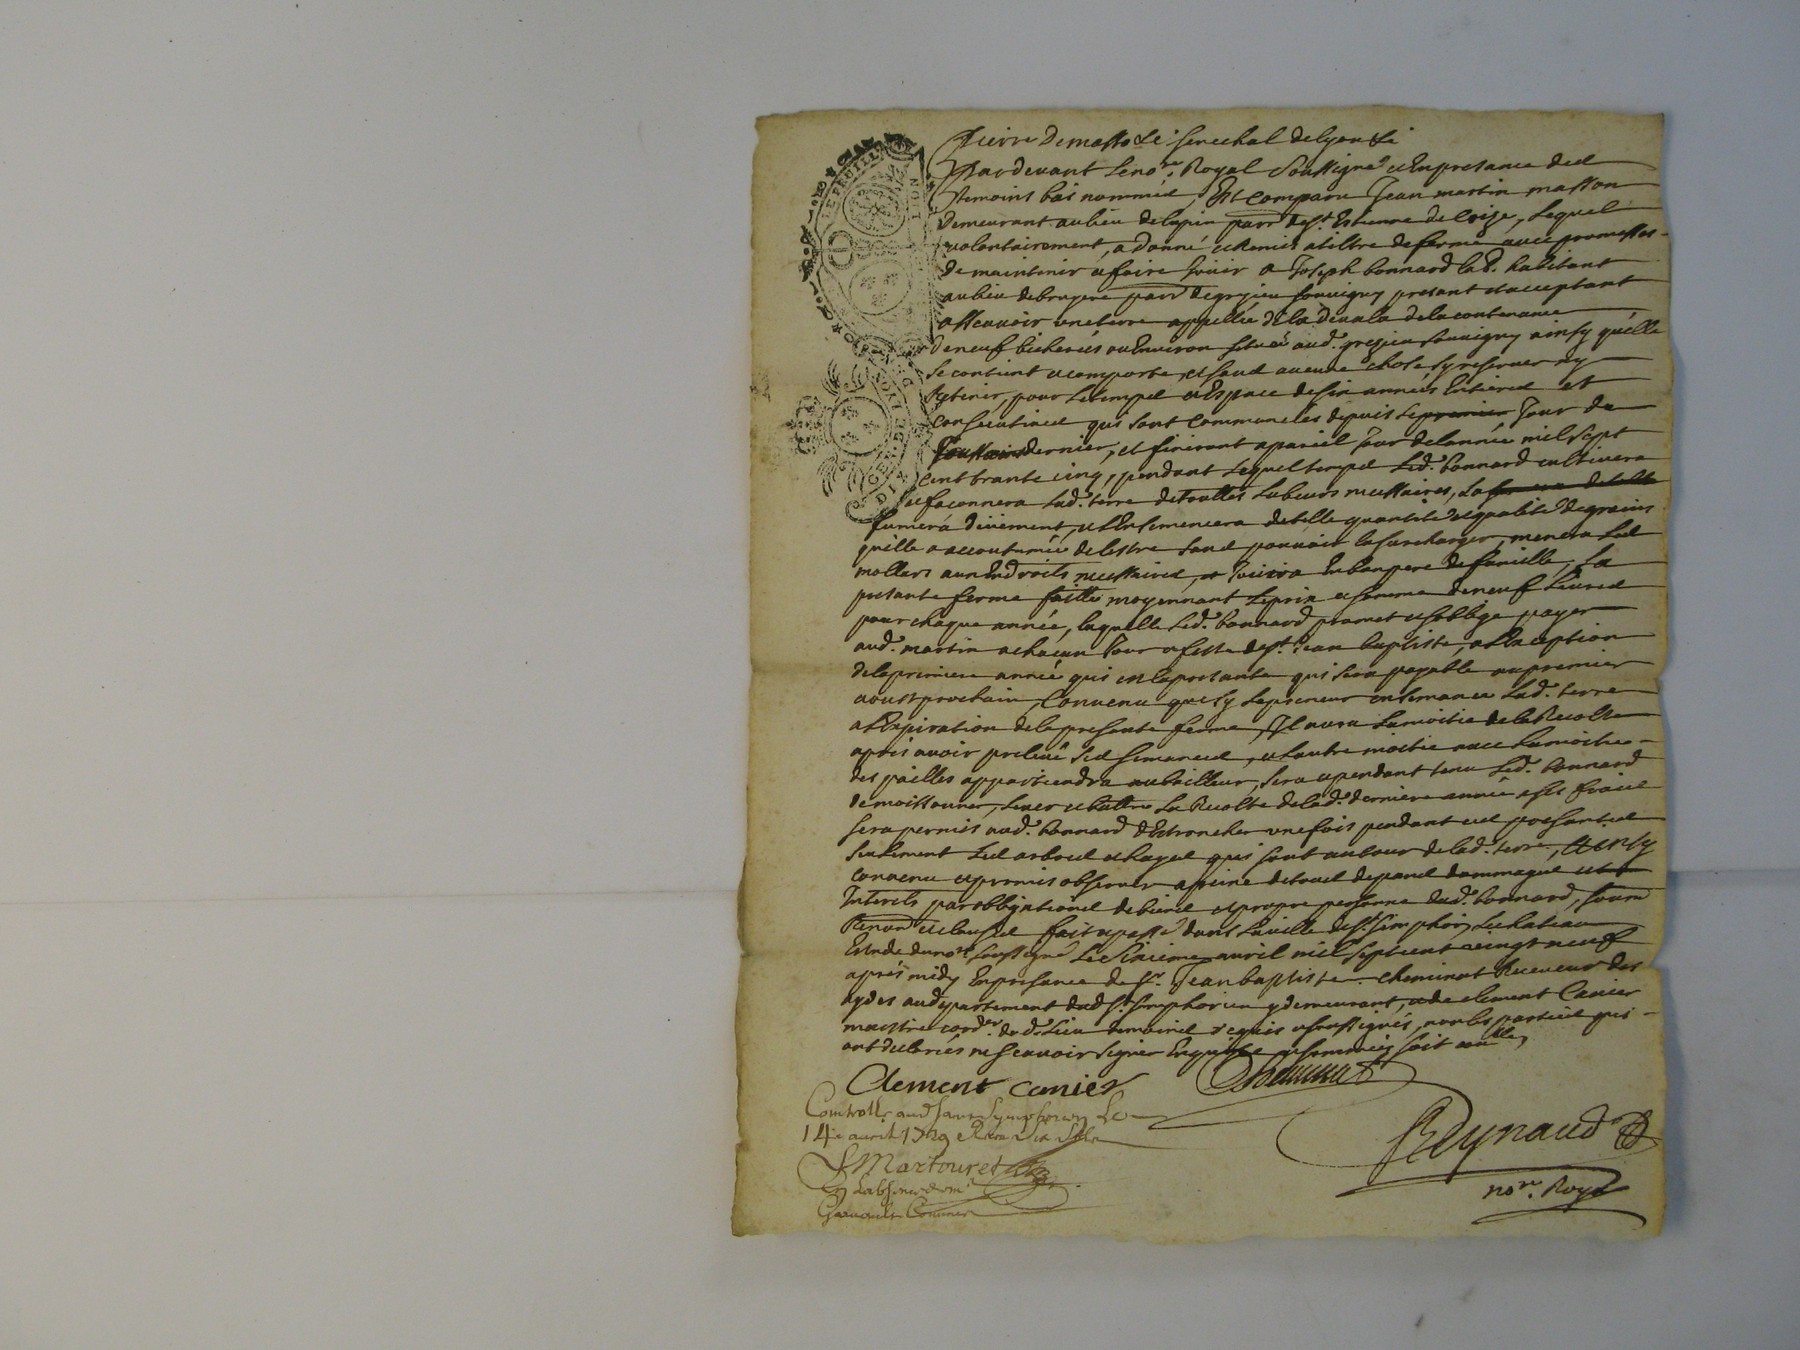 Pierre Demasso Le. Senechal de lyon &c
Pardevant Le no.re Royal Soussigné et En presance des
temoins bas nommés, Est comparu Jean martin masson
demeurant au lieu de lapin parr. de St. Estienne de Coize, Lequel
volontairement, a donné et Remis a tiltre de ferme avec promesses
de maintenir et faire Jouir a Joseph bonnard lab.r habitant
au lieu de bruyere parr. de grezieu Souvigny presant et acceptant
assavoir une terre appellée de la devala de la contenance
de neuf bicherées ou Environ scituée aud. grezieu Souvigny ainsy qu'elle
se contient et comporte, et sans aucune chose sy reserver ny
retenir, pour Le temps et Espace de six années Entieres et
consecutives qui sont commencées depuis Le premier Jour de
Toussains dernier, et finiront a pareil Jour de lannée mil sept
cent trante cinq, pendant Lequel temps Led. bonnard cultivera
et façonnera Lad. terre de touttes Labeurs necessaires, La
fumera düement, et L'Ensemencera de telle quantité et qualité de grains
quelle a accoutumée de lestre sans pouvoir la surcharger, menera Les
mollers aux Endroits necessaires, et Joüira En bon pere de famille, La
presante ferme faitte moyennant Le prix et somme de neuf Livres
pour chaque année, laquelle Led. bonnard promet et sobblige payer
aud. martin a chacun Jour et feste de St. Jean baptiste, a L'Exception
de la premiere année qui est la presante qui sera payable au premier
aoust prochain, Convenu que sy Le preneur ensemance Lad. terre
a L'Expiration de la presente ferme, Il aura La moitié de la Recolte
après avoir prelevé Les semances, et L'autre moitié avec La moitié
des pailles appartiendra au bailleur, sera cependant tenu Led. bonnard
de moissonner, Lever et battre La Recolte de lad. derniere année a ses fraix
sera permis aud. bonnard d'Estroncher une fois pendant ces presantes
seulement Les arbres et hayes qui sont autour de lad. terre, Ainsy
convenu et promis observer a peine de tous depans dommages et
Interets par obbligations de biens et propre personne dud. bonnard, soum.
Renon. et clauses fait et passé dans La ville de St. Simphor.n Le chateau
Estude du no.re soussigné Le Sixieme avril mil sept cent vingt neuf
après midy En presance de Sr. Jean baptiste cheminat Receveur des
aydes au departement dud. St. Simphorien y demeurant, et de clement Canier
maistre cord.er dud. Lieu temoins requis et soussignés, non les parties qui
ont declarées ne scavoir signer Enquises et sommées
Clement canier Cheminat
Controllé aud. Saint Symphorien Le
14e avril 1729 Receu dix sols
Martouret
Reynaud
no.re Royal